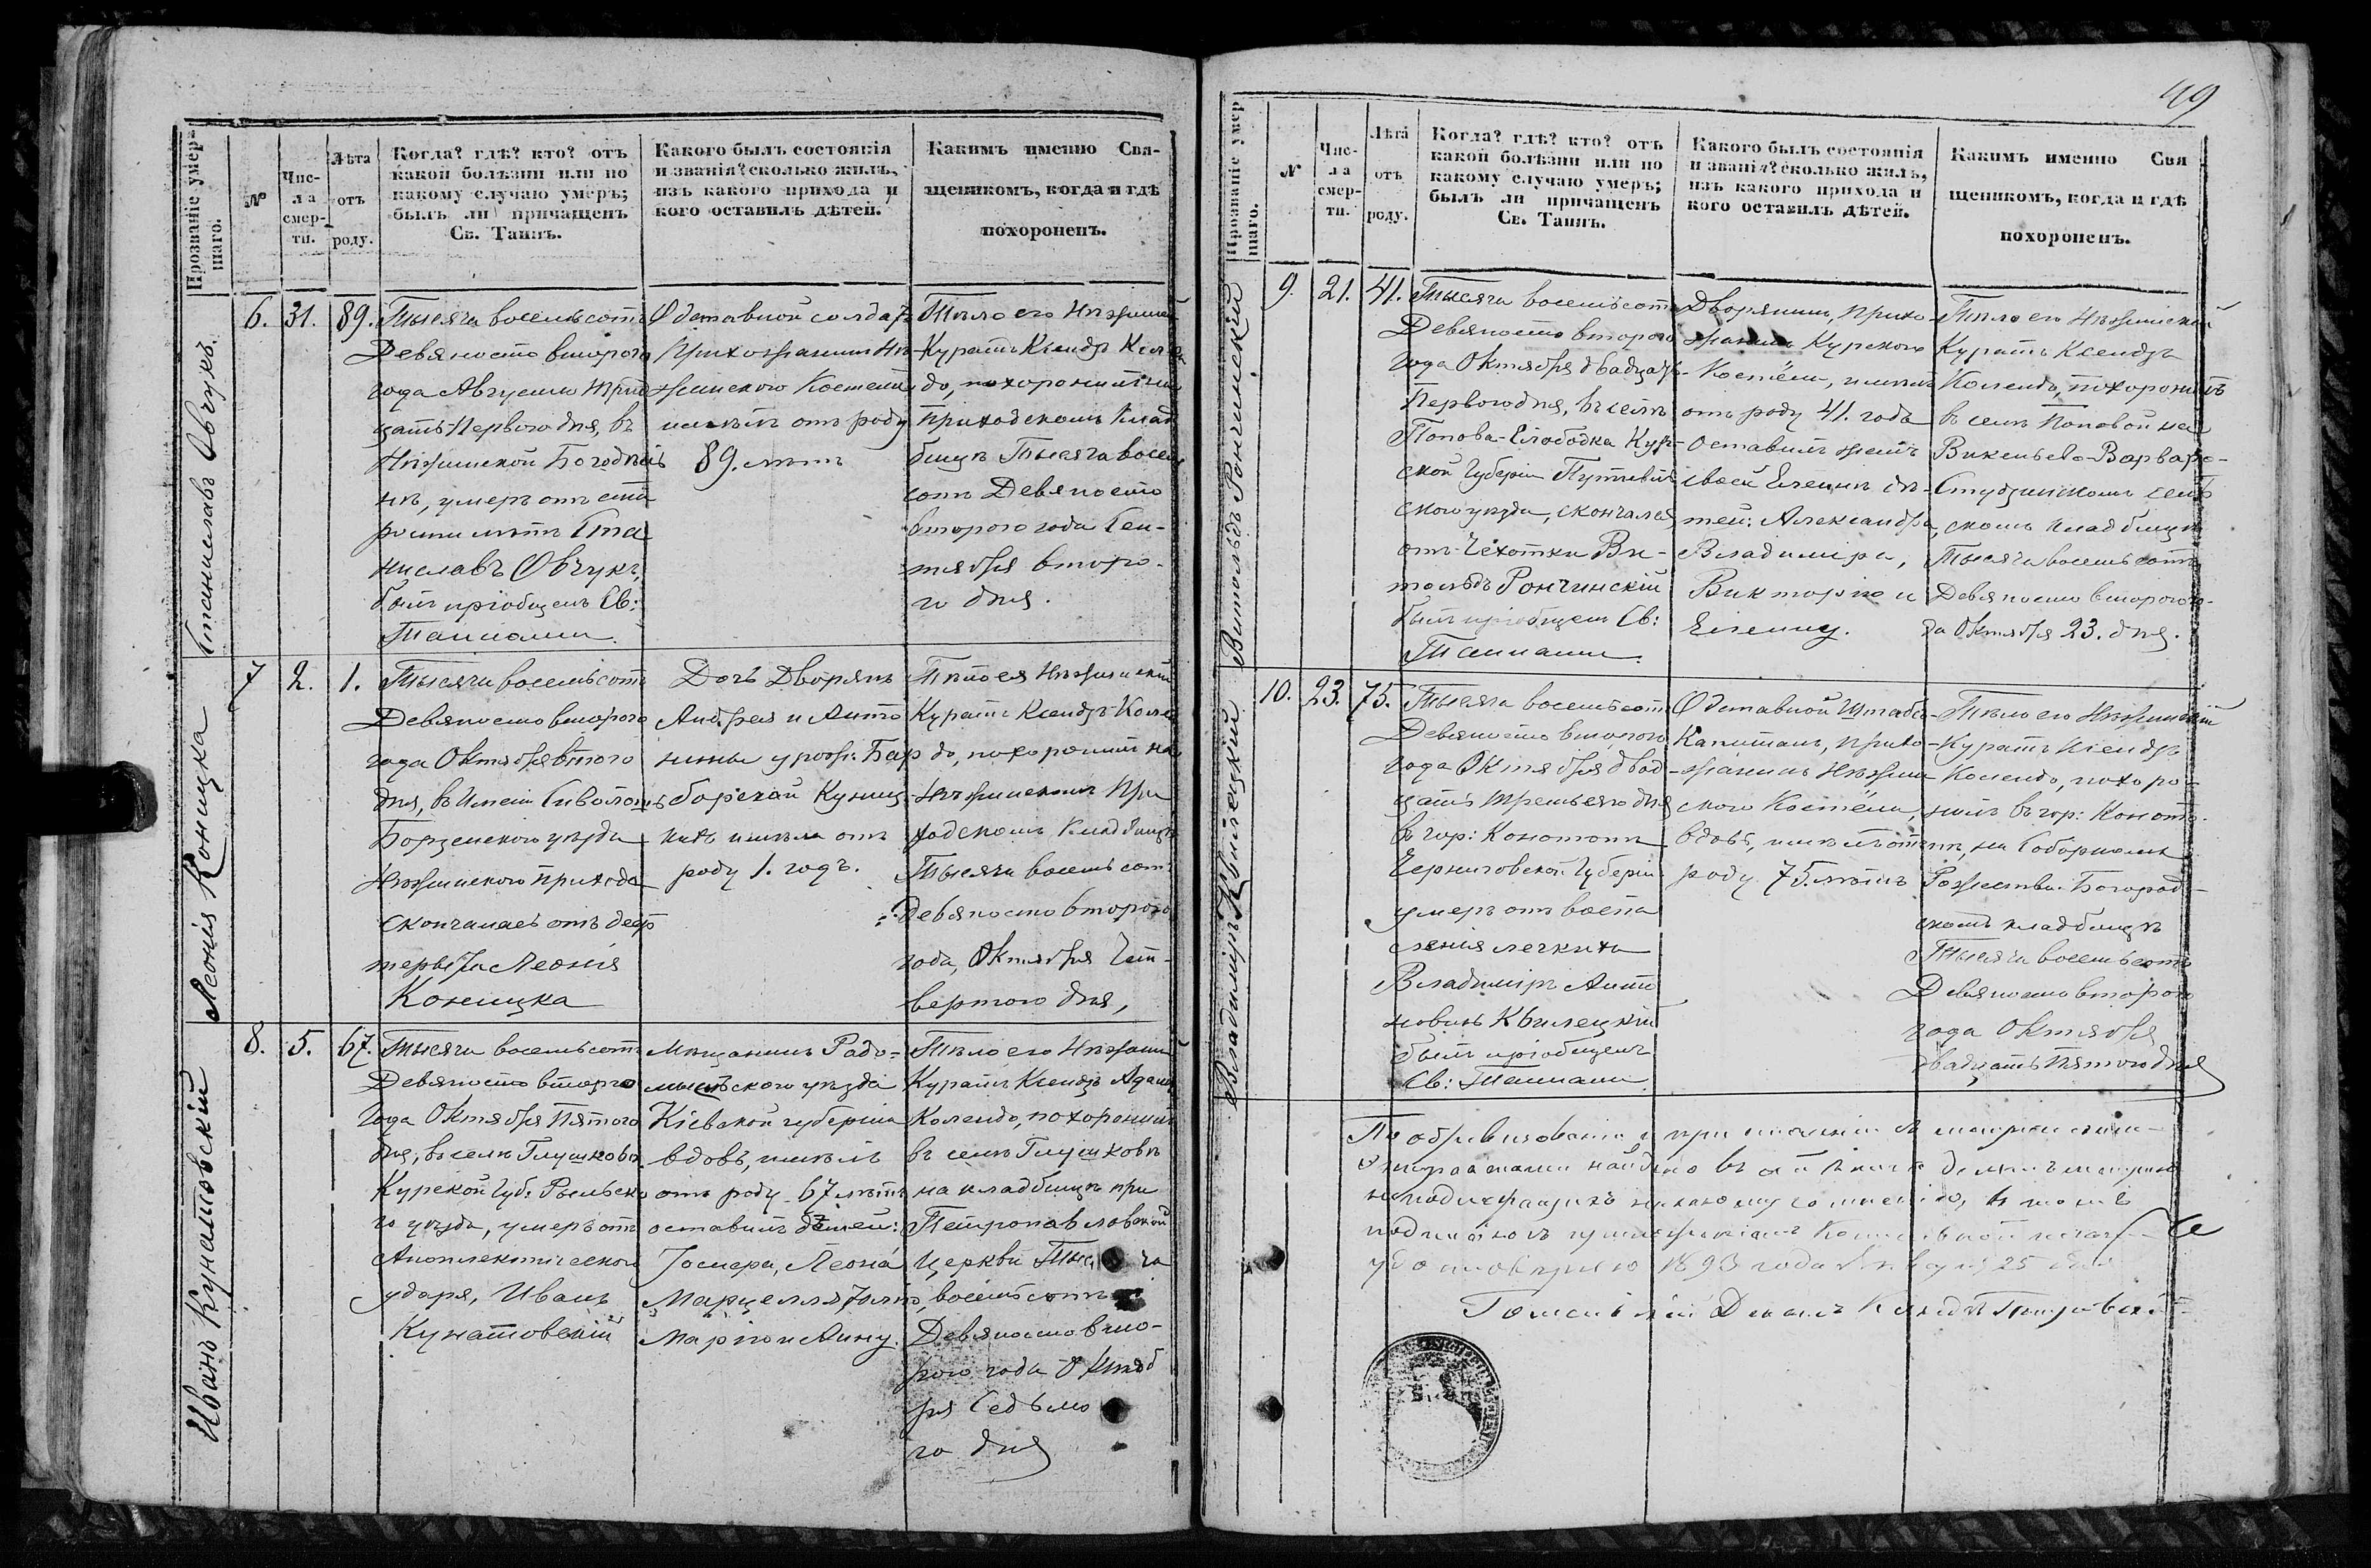 49
Прозваніе умер
шаго.
№
Чис-
ла
смер-
ти.
Лѣта
отъ
роду.
Когда? гдѣ? кто? отъ
какой болѣзни или по
какому случаю умеръ;
былъ ли причащенъ
Св. Таинъ.
Какого былъ состоянія
и званія? сколько жилъ,
изъ какого прихода и
кого оставилъ дѣтей.
Какимъ именно Свя-
щенникомъ, когда и гдѣ
похороненъ.
Станиславъ Овчукъ.
6.
31.
89.
Тысяча восемьсотъ
Девяносто второго
года Августа Трид
цать Первого дня, въ
Нѣжинской Богодѣль
нѣ, умеръ отъ ста
рости лѣтъ Ста
ниславъ Овчукъ,
былъ пріобщенъ Св:
Тайнами.
Отставной солдатъ
Прихожанинъ Нѣ-
жинского Костела
имѣлъ отъ роду
89. лѣтъ
Тѣло его Нѣжинскій
Куратъ Ксендзъ Колен
до, похоронилъ на
Приходскомъ Клад
бищѣ Тысяча восемь
сотъ Девяносто
второго года Сен-
тября второ-
го дня.
Леонія Коницка
7
2.
1.
Тысяча восемьсотъ
Девяносто второго
года Октября второго
дня, въ Имѣніи
Борзенского уѣзда
Нѣжинского прихода
скончалась отъ диф
терыта Леонія
Коницка
Дочь Дворянъ
Андрея и Анто
нины урожд: Бар
борской Куниц
кихъ имѣла отъ
роду 1. годъ.
Тѣло ея Нѣжинскій
Куратъ Ксендзъ Колен
до, похоронилъ на
Нѣжинскомъ При
ходскомъ Кладбищѣ
Тысяча восемьсотъ
Девяносто второго
года, Октября Чет-
вертого дня,
Иванъ Кунатовскій
8.
5.
67.
Тысяча восемьсотъ
Девяносто второго
года Октября Пятого
дня, въ селѣ Глушковѣ
Курской Губ: Рыльско
го уѣзда, умеръ отъ
Апоплектического
удара, Иванъ
Кунатовскій
Мѣщанинъ Радо-
мысльского уѣзда
Кіевской губерніи
вдовъ, имѣлъ
отъ роду 67 лѣтъ
оставилъ дѣтей:
Леона
Марцелля
Марію и Анну
Тѣло его Нѣжин
Куратъ Ксендзъ Адамъ
Колендо, похоронилъ
въ селѣ Глушковѣ
на кладбищѣ при
Петропавловской
Церкви Тысяча
восемьсотъ
Девяносто вто-
рого года Октяб
ря Седьмо
го дня
Прозваніе умер
шаго.
№
Чис-
ла
смер-
ти.
Лѣта
отъ
роду.
Когда? гдѣ? кто? отъ
какой болѣзни или по
какому случаю умеръ;
былъ ли причащенъ
Св. Таинъ.
Какого былъ состоянія
и званія? сколько жилъ,
изъ какого прихода и
кого оставилъ дѣтей.
Какимъ именно Свя
щенникомъ, когда и гдѣ
похороненъ.
Витольдъ Рончинскій
9.
21.
41.
Тысяча восемьсотъ
Девяносто второго
года Октября двадцать
Первого дня, въ селѣ
Попова-Слободка Кур-
ской Губерніи Путивль
ского уѣзда, скончался
отъ Чахотки Ви-
тольдъ Рончинскій
былъ пріобщенъ Св:
Тайнами.
Дворянинъ, прихо-
жанинъ Курского
Костёла, имѣлъ
отъ роду 41. годъ
Оставилъ жену
дѣ-
тей: Александра,
Владиміра,
Викторію и
Елену.
Тѣло его Нѣжинскій
Куратъ Ксендзъ
Колендо, похоронилъ
въ селѣ Поповой на
Викентьево-Варваро-
скомъ кладбищѣ
Тысяча восемьсотъ
Девяносто второго го-
да Октября 23. дня.
Владиміръ Квилецкій
10.
23.
75.
Тысяча восемьсотъ
Девяносто второго
года Октября двад
цать третьего дня
въ гор: Конотопѣ
Черниговской Губерніи
умеръ отъ воспа
ленія легкихъ
Владиміръ Анто
новичъ Квилецкій
былъ пріобщенъ
Св: Тайнами
Отставной Штабсъ-
Капитанъ, прихо-
жанинъ Нѣжин
ского Костёла,
вдовъ, имѣлъ отъ
роду 75. лѣтъ
Тѣло его Нѣжинскій
Куратъ Ксендзъ
Колендо, похоро-
нилъ въ гор: Коното-
пѣ, на Соборномъ
Рождества-Богород-
скомъ кладбищѣ
Тысяча восемьсотъ
Девяносто второго
года Октября
двадцать пятого дня
По обревизованіи
1893 года Января 25 дня
Деканъ Ксендзъ